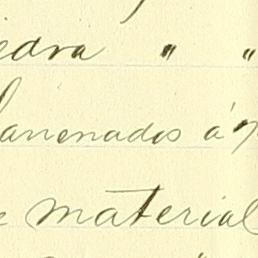 edra " "
lanenados á
e material